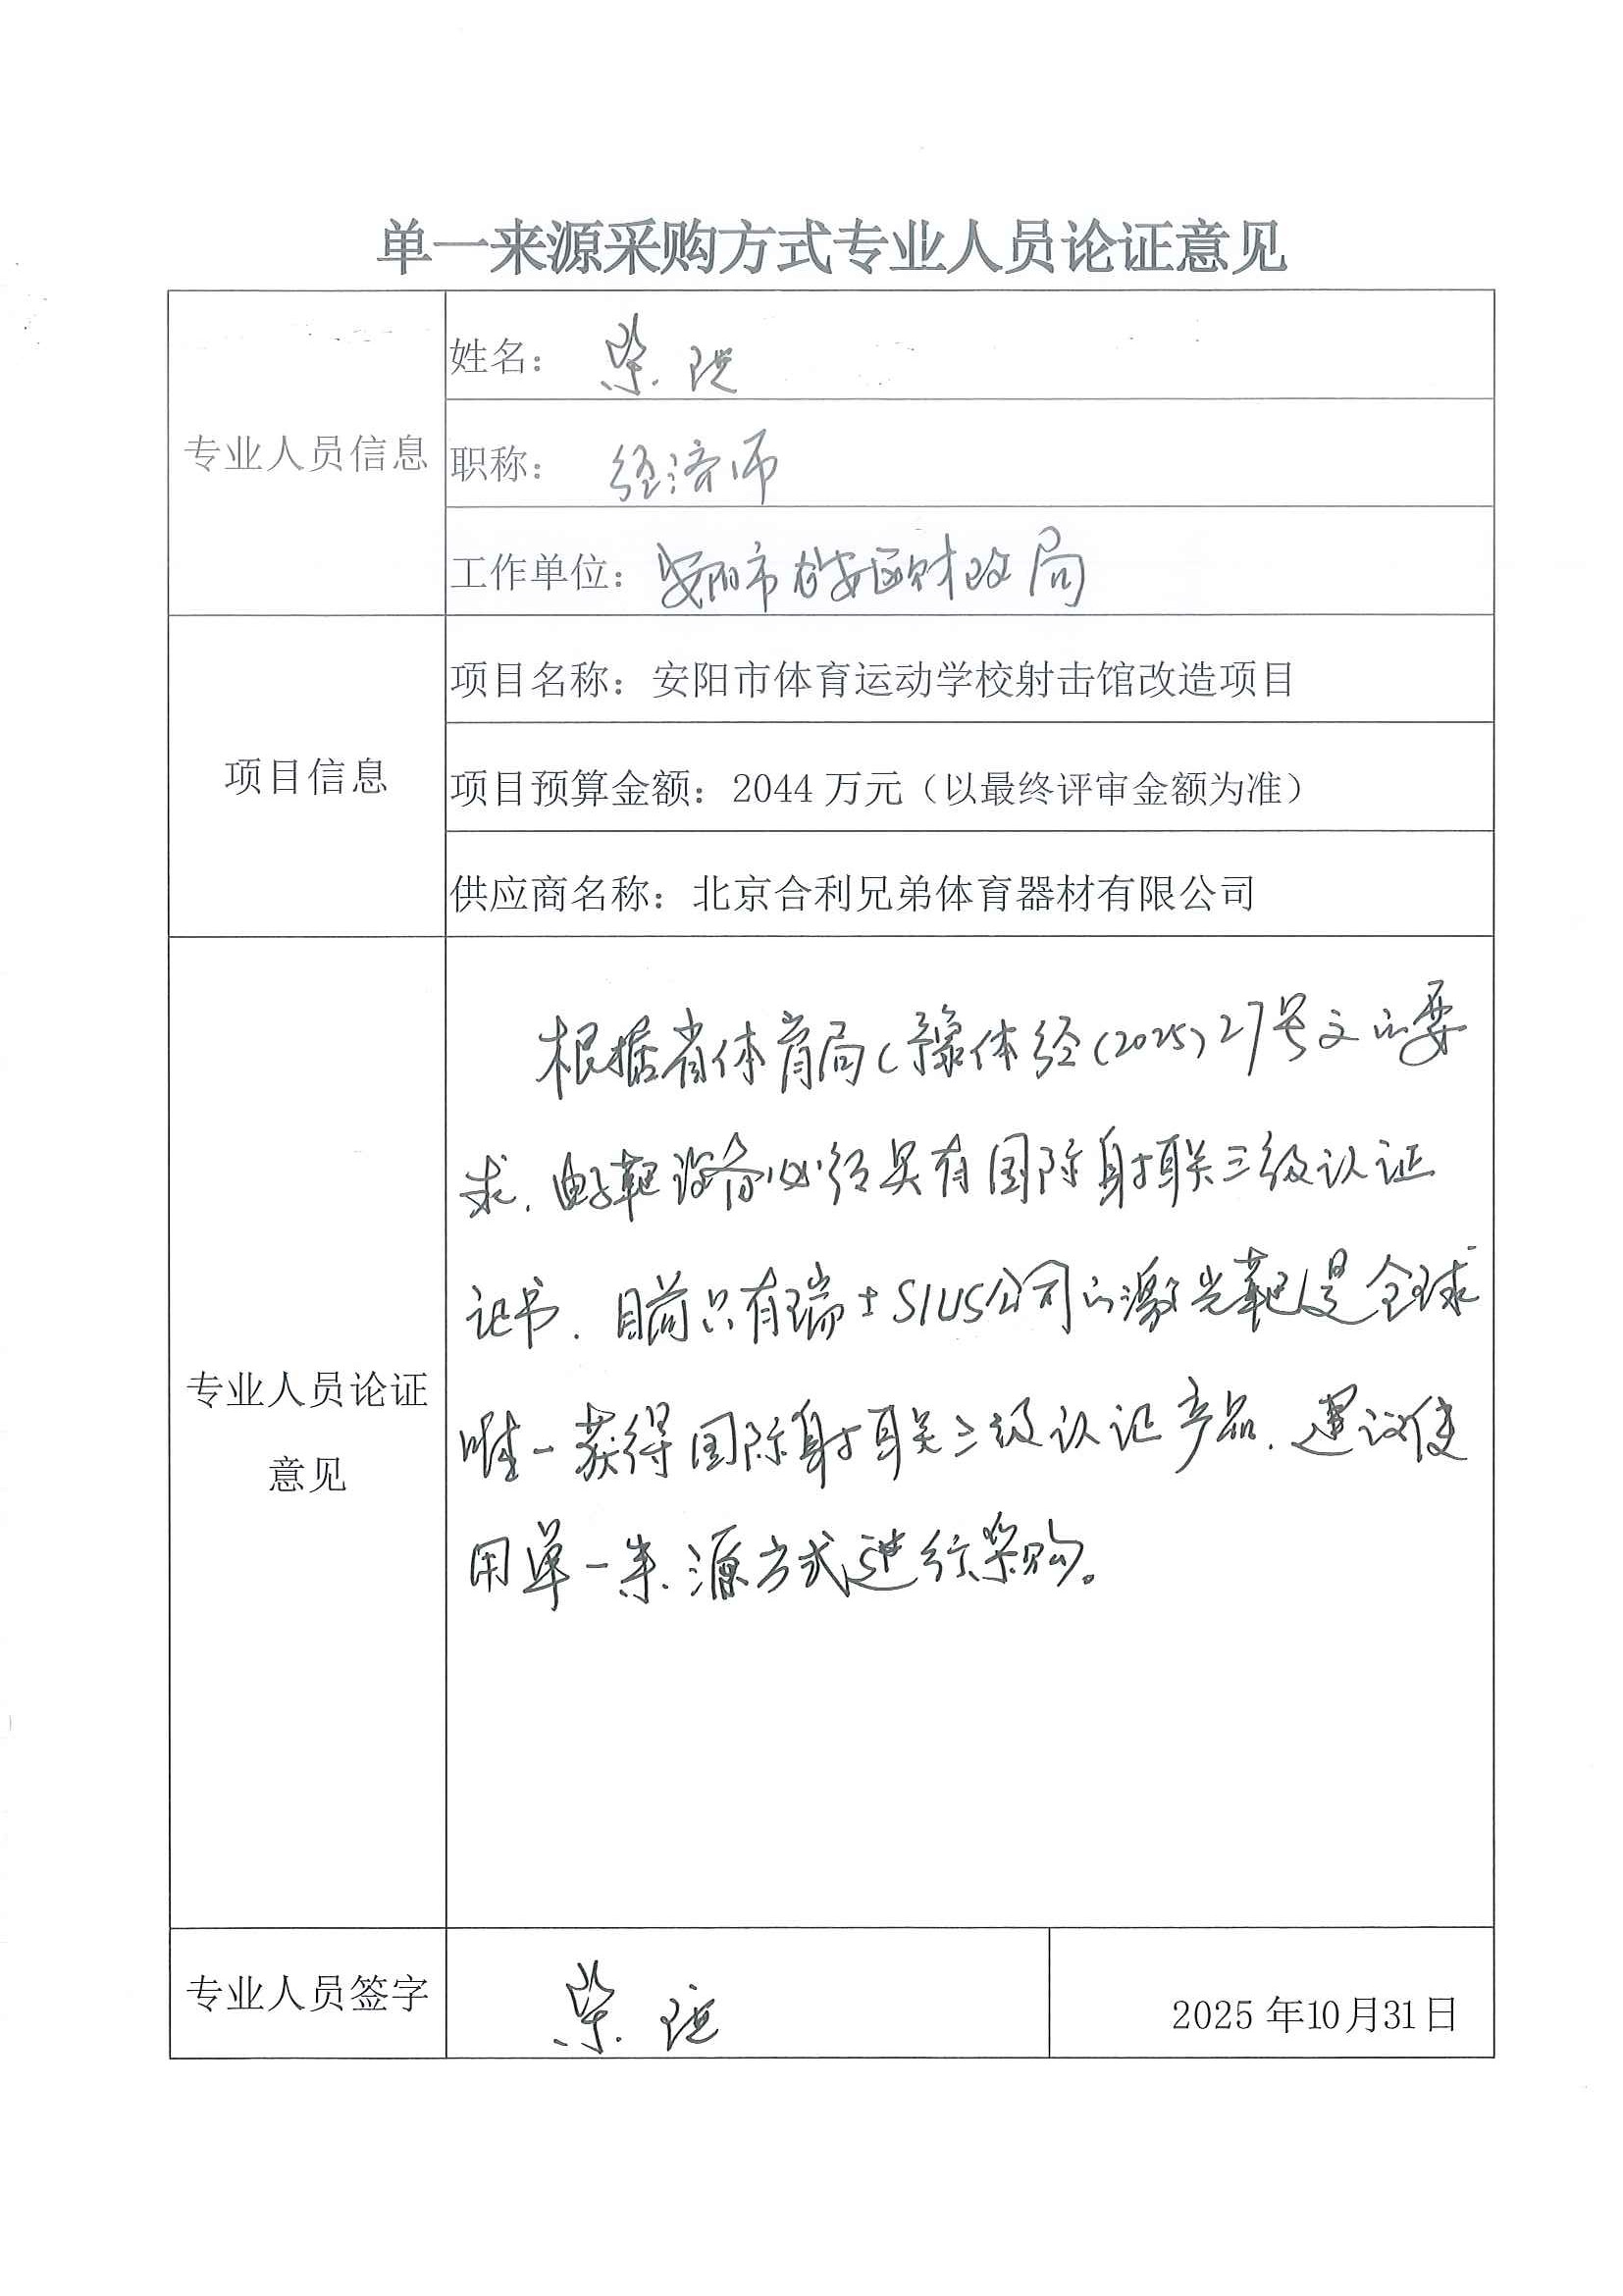 单一来源采购方式专业人员论证意见
专业人员信息
姓名：
职称： 经济师
工作单位：安阳市龙安区财政局
项目信息
项目名称：安阳市体育运动学校射击馆改造项目
项目预算金额：2044 万元（以最终评审金额为准）
供应商名称：北京合利兄弟体育器材有限公司
专业人员论证
意见
根据省体育局（豫体经(2025)27号文的要
求．电子靶设备必须具有国际射联三级认证
证书．目前只有瑞士SIUS公司的激光靶是全球
唯一获得国际射联三级认证产品．建议使
用单一来源方式进行采购。
专业人员签字
2025 年10月31日